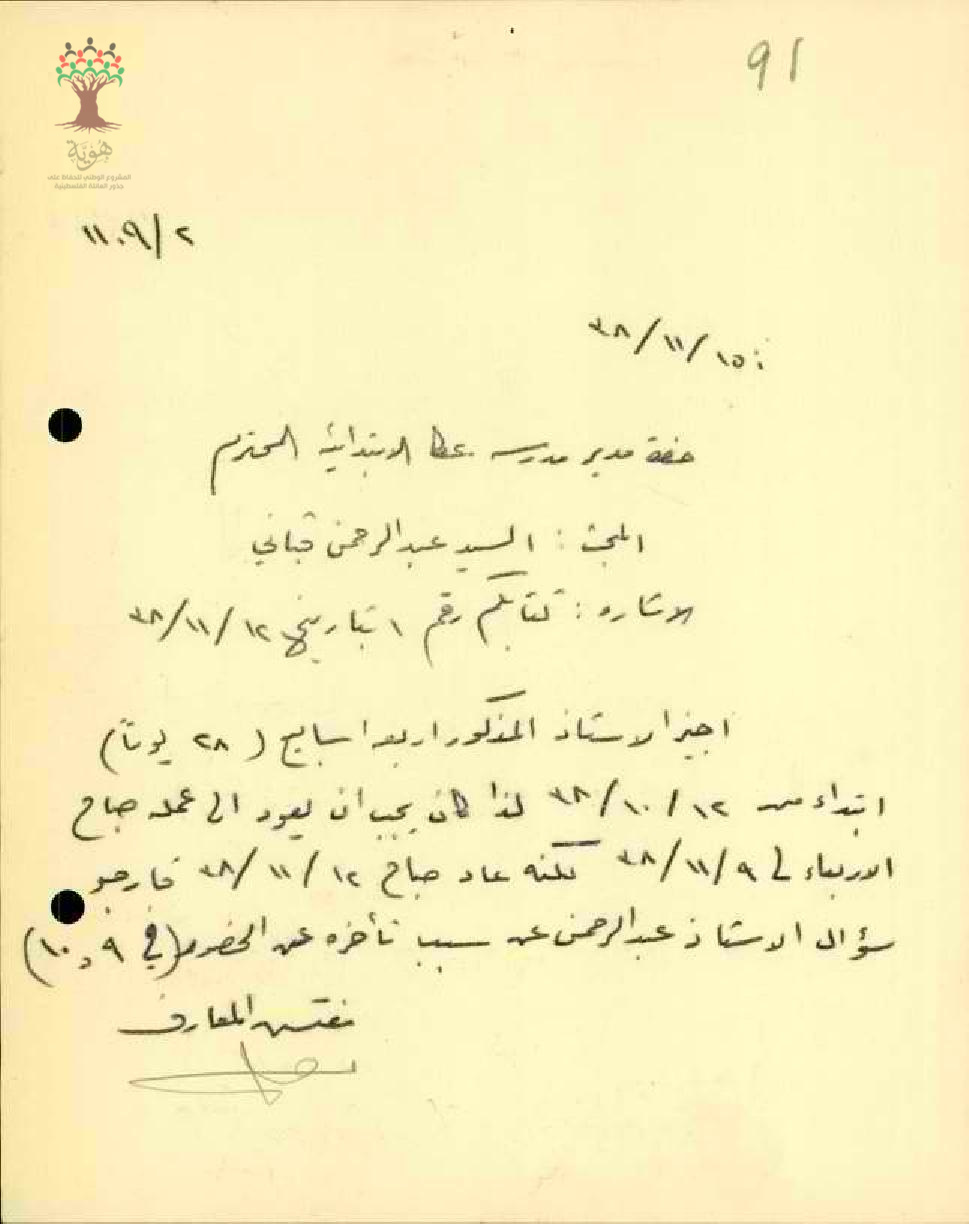 91
هوية
المشروع الوطني للحفاظ على
جذور العائلة الفلسطينية
١١٠٩/٢
٣٨/١١/١٥
حضرة مدير مدرسة عكا الابتدائية المحترم
المبحث : السيد عبدالرحمن قباني
الاشاره : كتابكم رقم ١ بتاريخ ٣٨/١١/١٢
اجيز الاستاذ المذكور اربعة اسابيع ( ٢٨ يوماً )
ابتداء من ٣٨/١٠/١٢ لذا كان يجب ان يعود الى عمله صباح
الاربعاء في ٣٨/١١/٩ لكنه عاد صباح ٣٨/١١/١٢ فارجو
سؤال الاستاذ عبدالرحمن عن سبب تأخره عن الحضور (في ٩ و ١٠)
مفتش المعارف